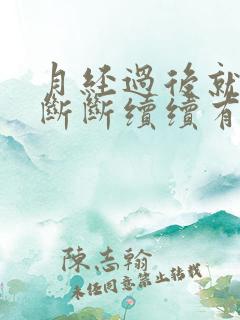 月经過後就
斷斷續續有
陳志翰
未任同意禁止转载